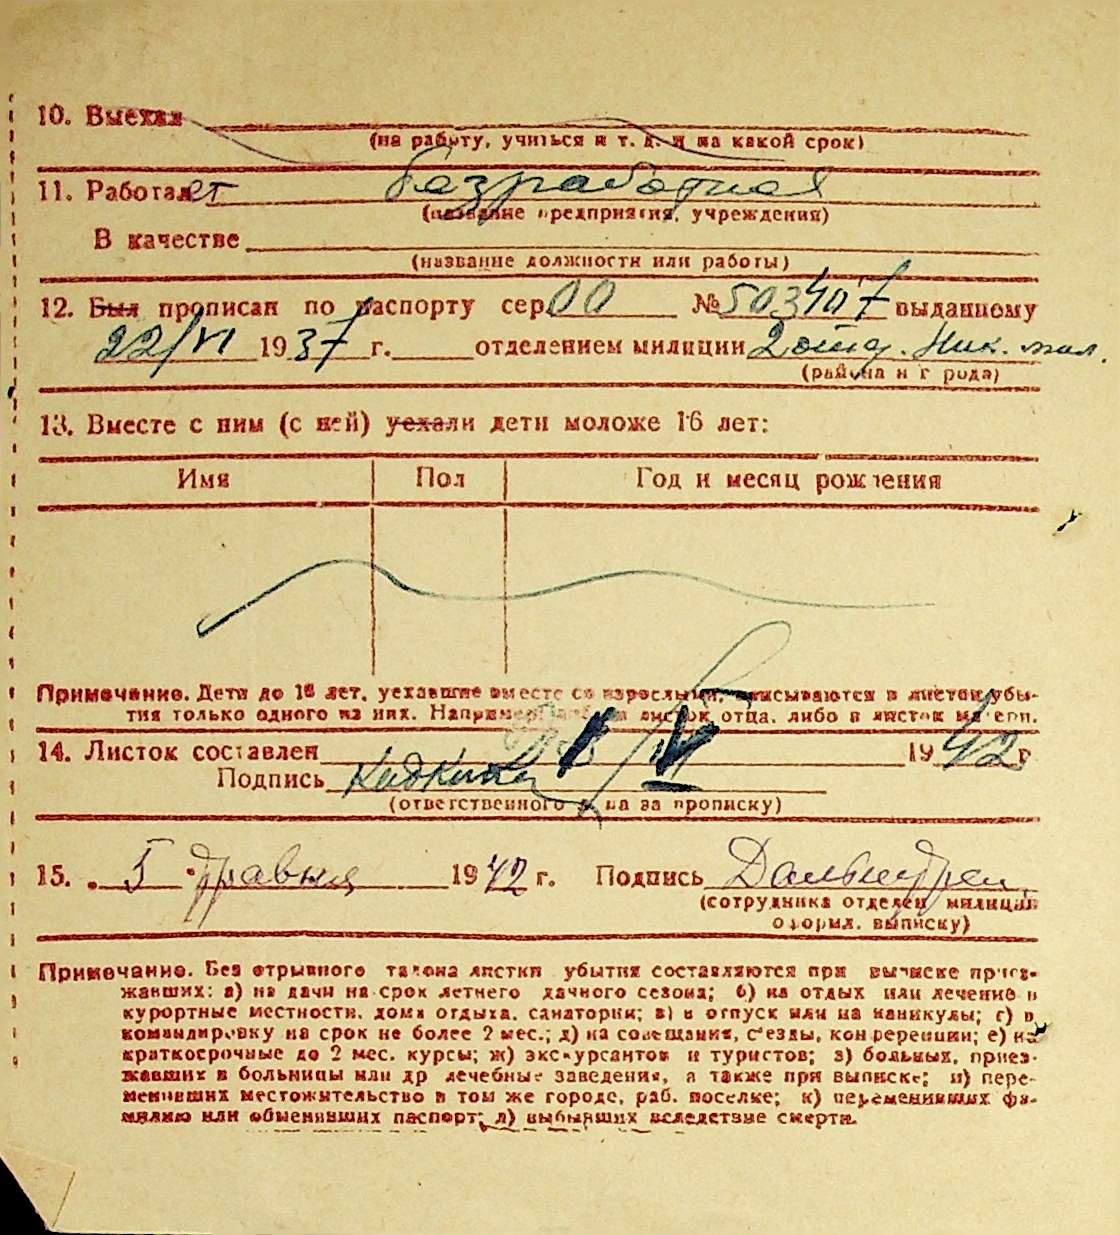 10. Выехал
(на работу, учиться и т. д. и на какой срок)
11. Работает безработная
(название предприятия, учреждения)
В качестве
(название должности или работы)
12. Был прописан по паспорту сер. 00 № 503407 выданному
22/VI 1937 г. отделением милиции 2 отд. Ник. мил.
(района и города)
13. Вместе с ним (с ней) уехали дети моложе 16 лет:
Имя Пол Год и месяц рождения
Примечание. Дети до 16 лет, уехавшие вместе со взрослыми, вписываются в листок убы-
тия только одного из них. Например: либо в листок отца, либо в листок матери.
14. Листок составлен 1942 г
Подпись
(ответственного лица за прописку)
15. 5 травня 1942 г. Подпись
(сотрудника отделен. милиции
оформл. выписку)
Примечание. Без отрывного талона листки убытия составляются при выписке приез-
жавших: а) на дачи на срок летнего дачного сезона; б) на отдых или лечение в
курортные местности, дома отдыха, санатории; в) в отпуск или на каникулы; г) в
командировку на срок не более 2 мес.; д) на совещания, с'езды, конференции; е) на
краткосрочные до 2 мес. курсы; ж) экскурсантов и туристов; з) больных, приез-
жавших в больницы или др лечебные заведения, а также при выписке; и) пере-
менивших местожительство в том же городе, раб. поселке; к) переменивших фа-
милию или обменивших паспорт; л) выбывших вследствие смерти.